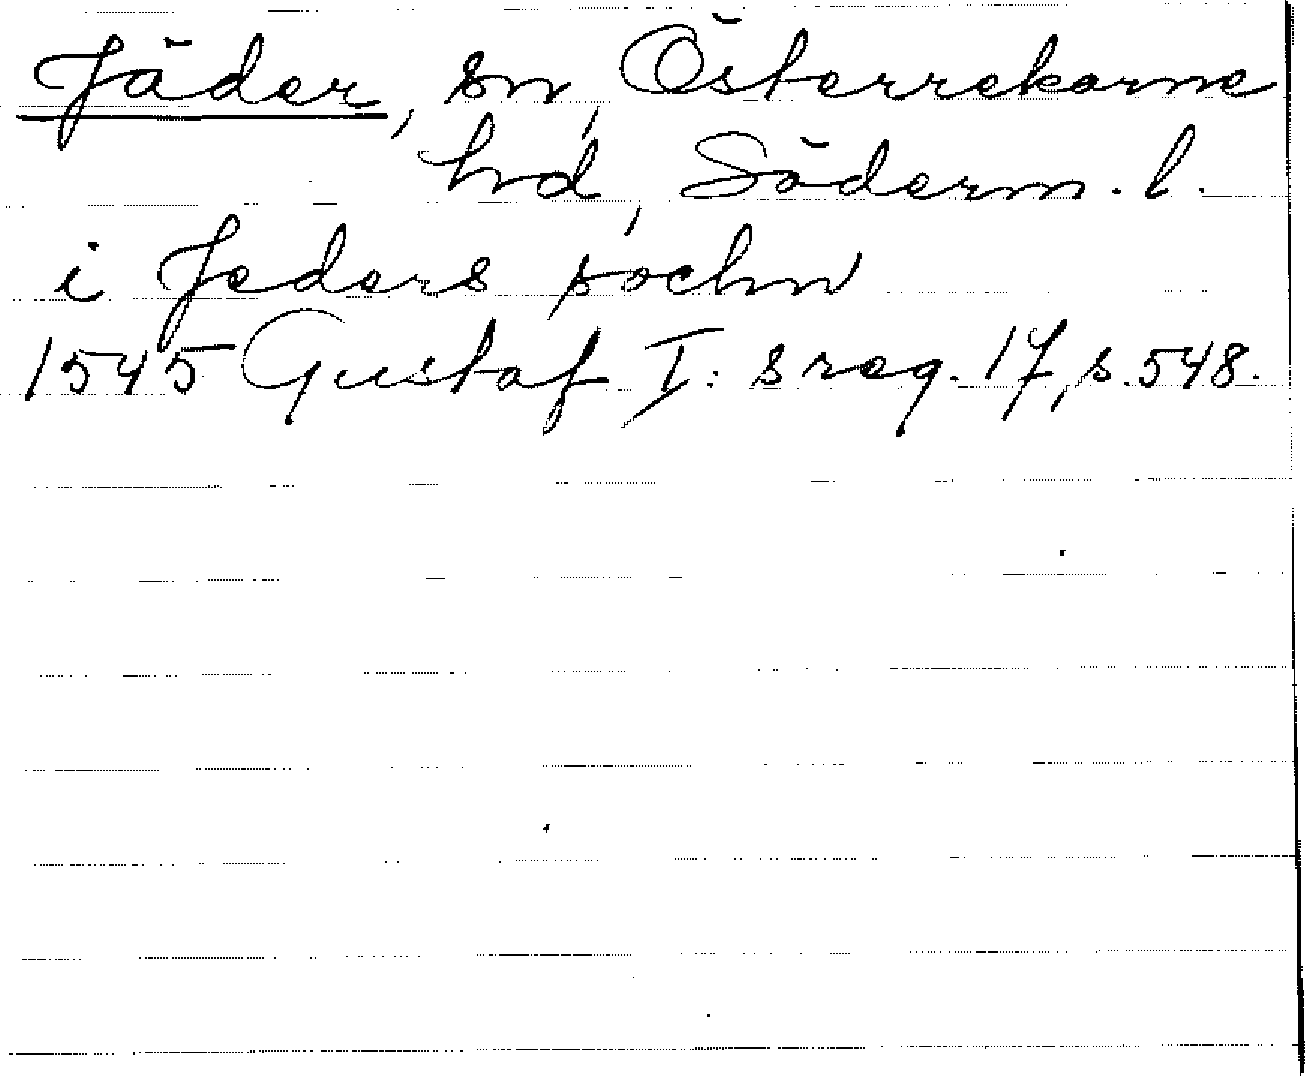 Jäder, sn, Österrekarne
hd, Söderm. l.
i Jeders sochn
1545 Gustaf I: s reg. 17, s. 548.